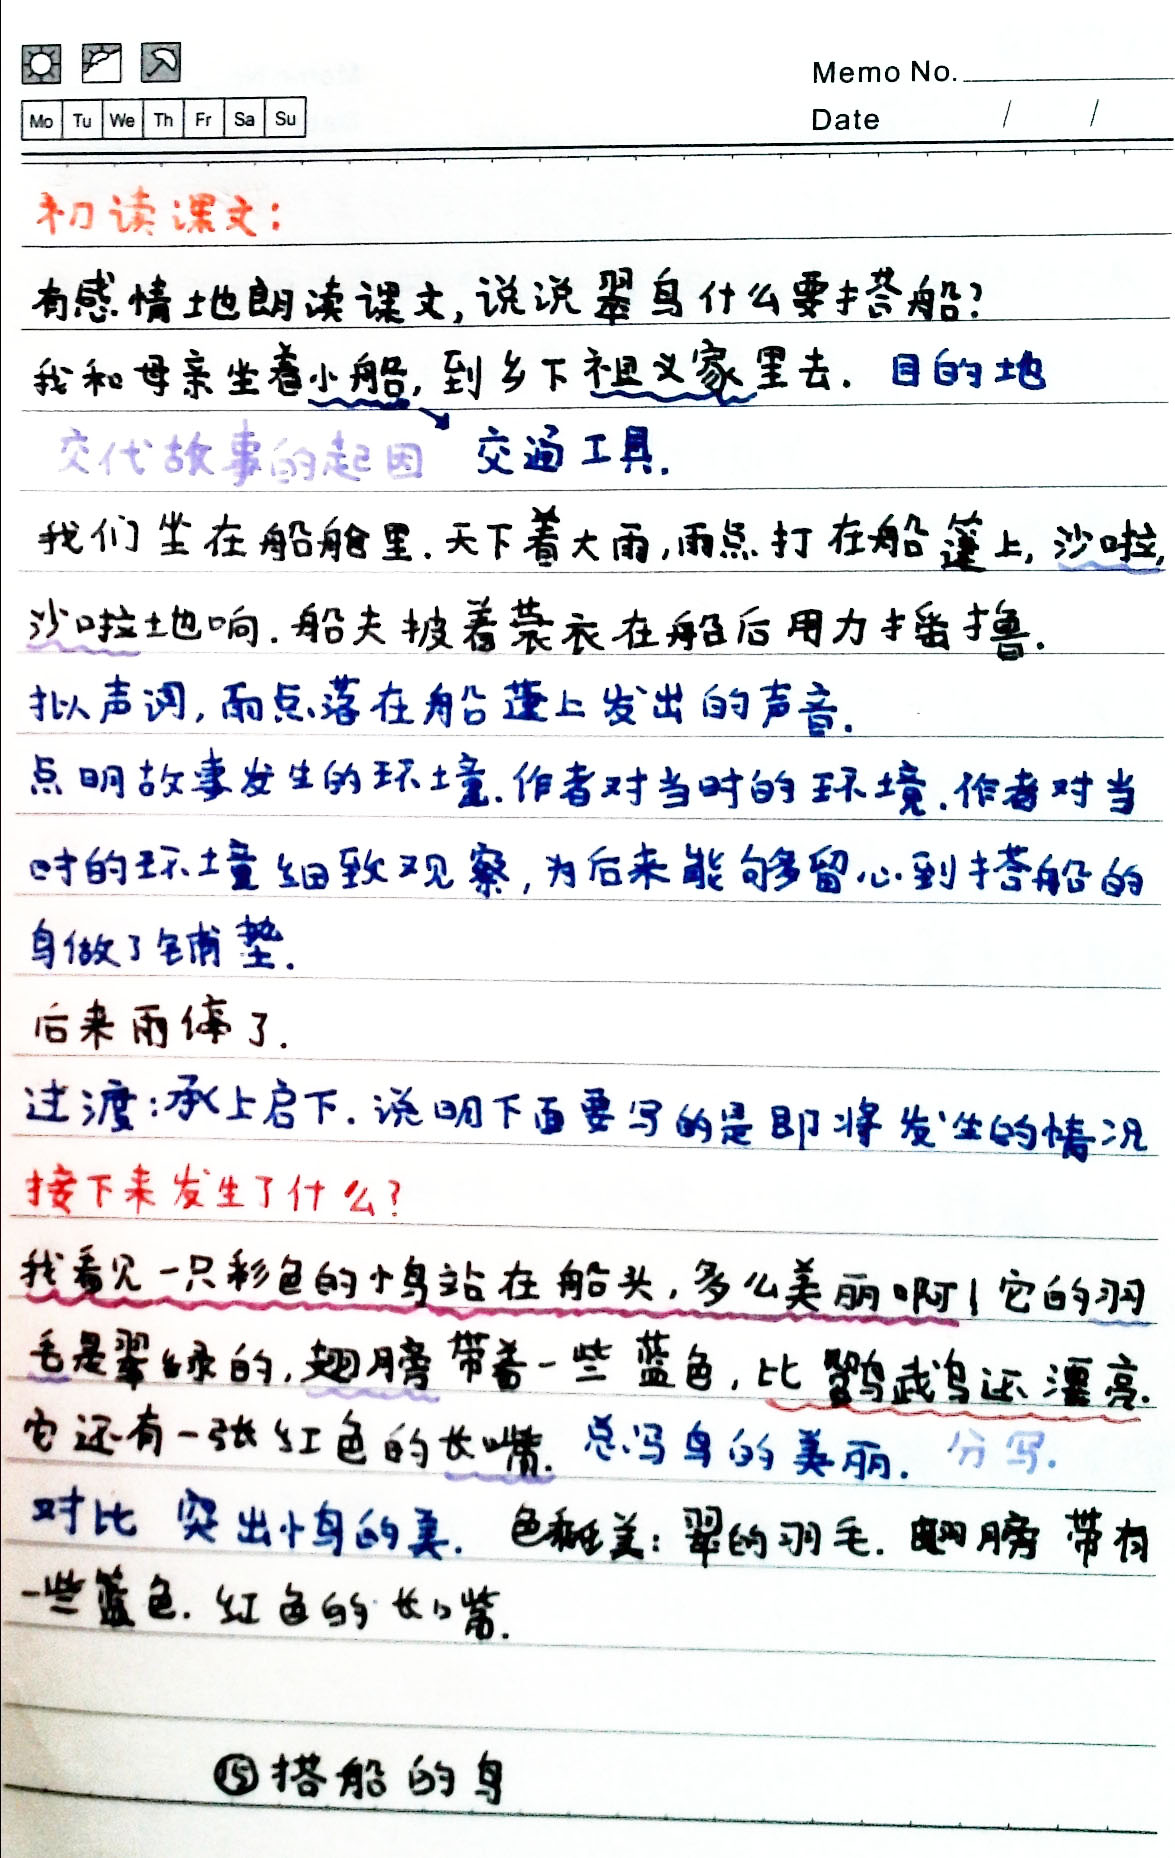 Memo No.
Mo Tu We Th Fr Sa Su
Date / /
初读课文:
有感情地朗读课文,说说翠鸟什么要搭船?
我和母亲坐着小船,到乡下祖父家里去. 目的地
交代故事的起因 交通工具.
我们坐在船舱里.天下着大雨,雨点打在船篷上,沙啦,
沙啦地响.船夫披着蓑衣在船后用力摇橹.
拟声词,雨点落在船蓬上发出的声音.
点明故事发生的环境.作者对当时的环境.作者对当
时的环境细致观察,为后来能够留心到搭船的
鸟做了铺垫.
后来雨停了.
过渡:承上启下.说明下面要写的是即将发生的情况
接下来发生了什么?
我看见一只彩色的小鸟站在船头,多么美丽啊!它的羽
毛是翠绿的,翅膀带着一些蓝色,比鹦鹉鸟还漂亮.
它还有一张红色的长嘴. 总写鸟的美丽. 分写.
对比 突出小鸟的美. 色彩美:翠的羽毛.翅膀带有
一些蓝色.红色的长嘴.
⑮搭船的鸟